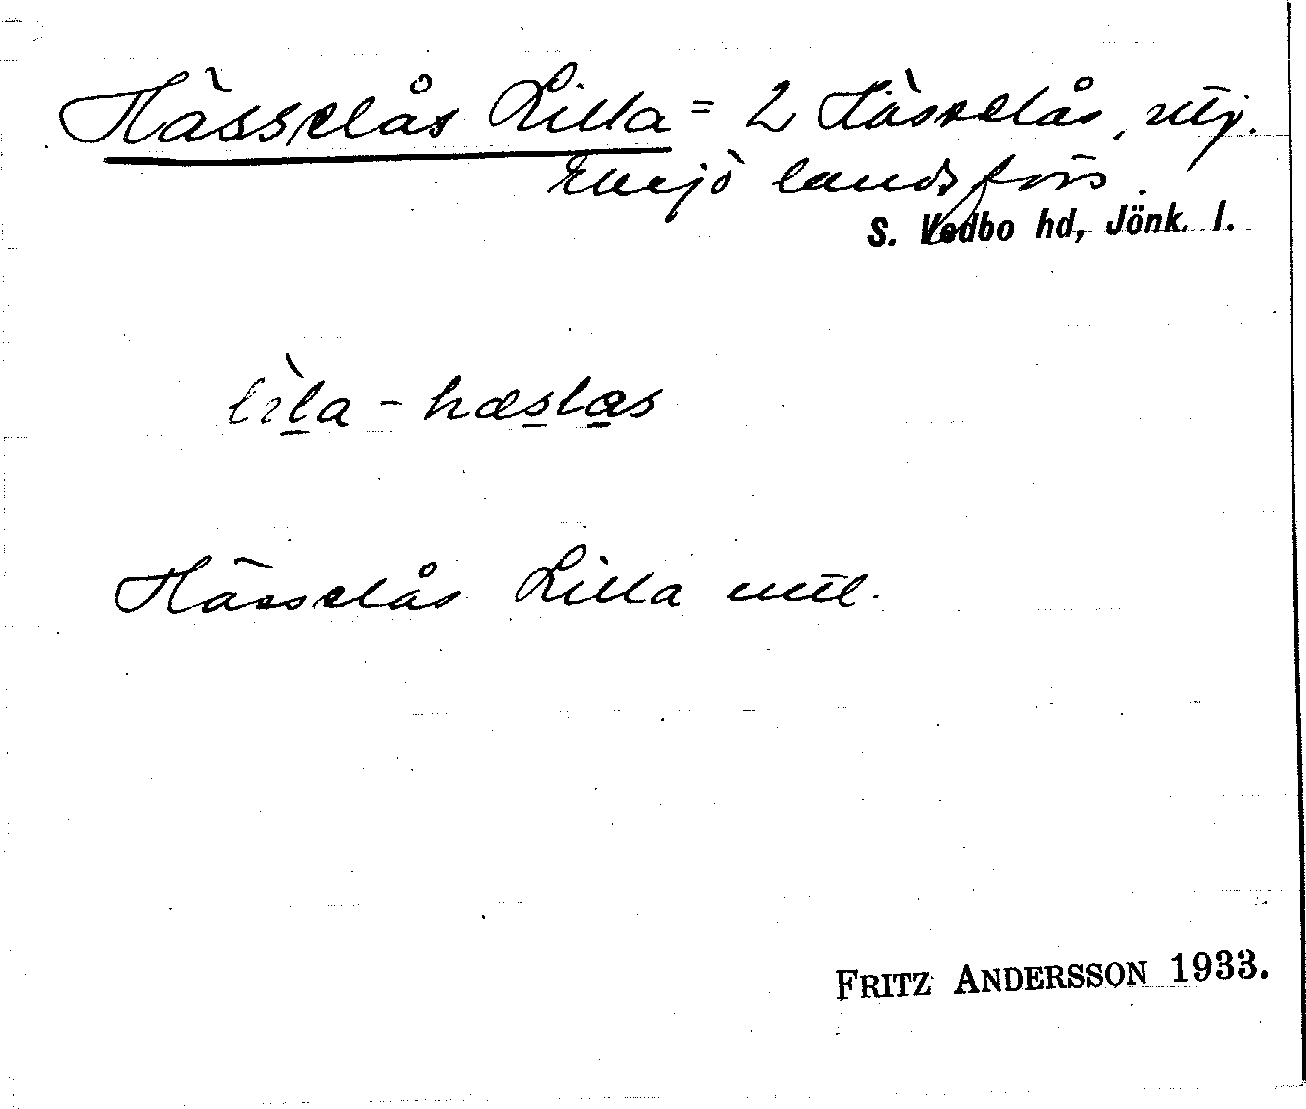 Hässelås Lilla = L Hässelås, utj.
Eksjö landsförs.
S. Vedbo hd, Jönk. l.
lìla - hæslas
Hässelås Lilla utl.
FRITZ ANDERSSON 1933.